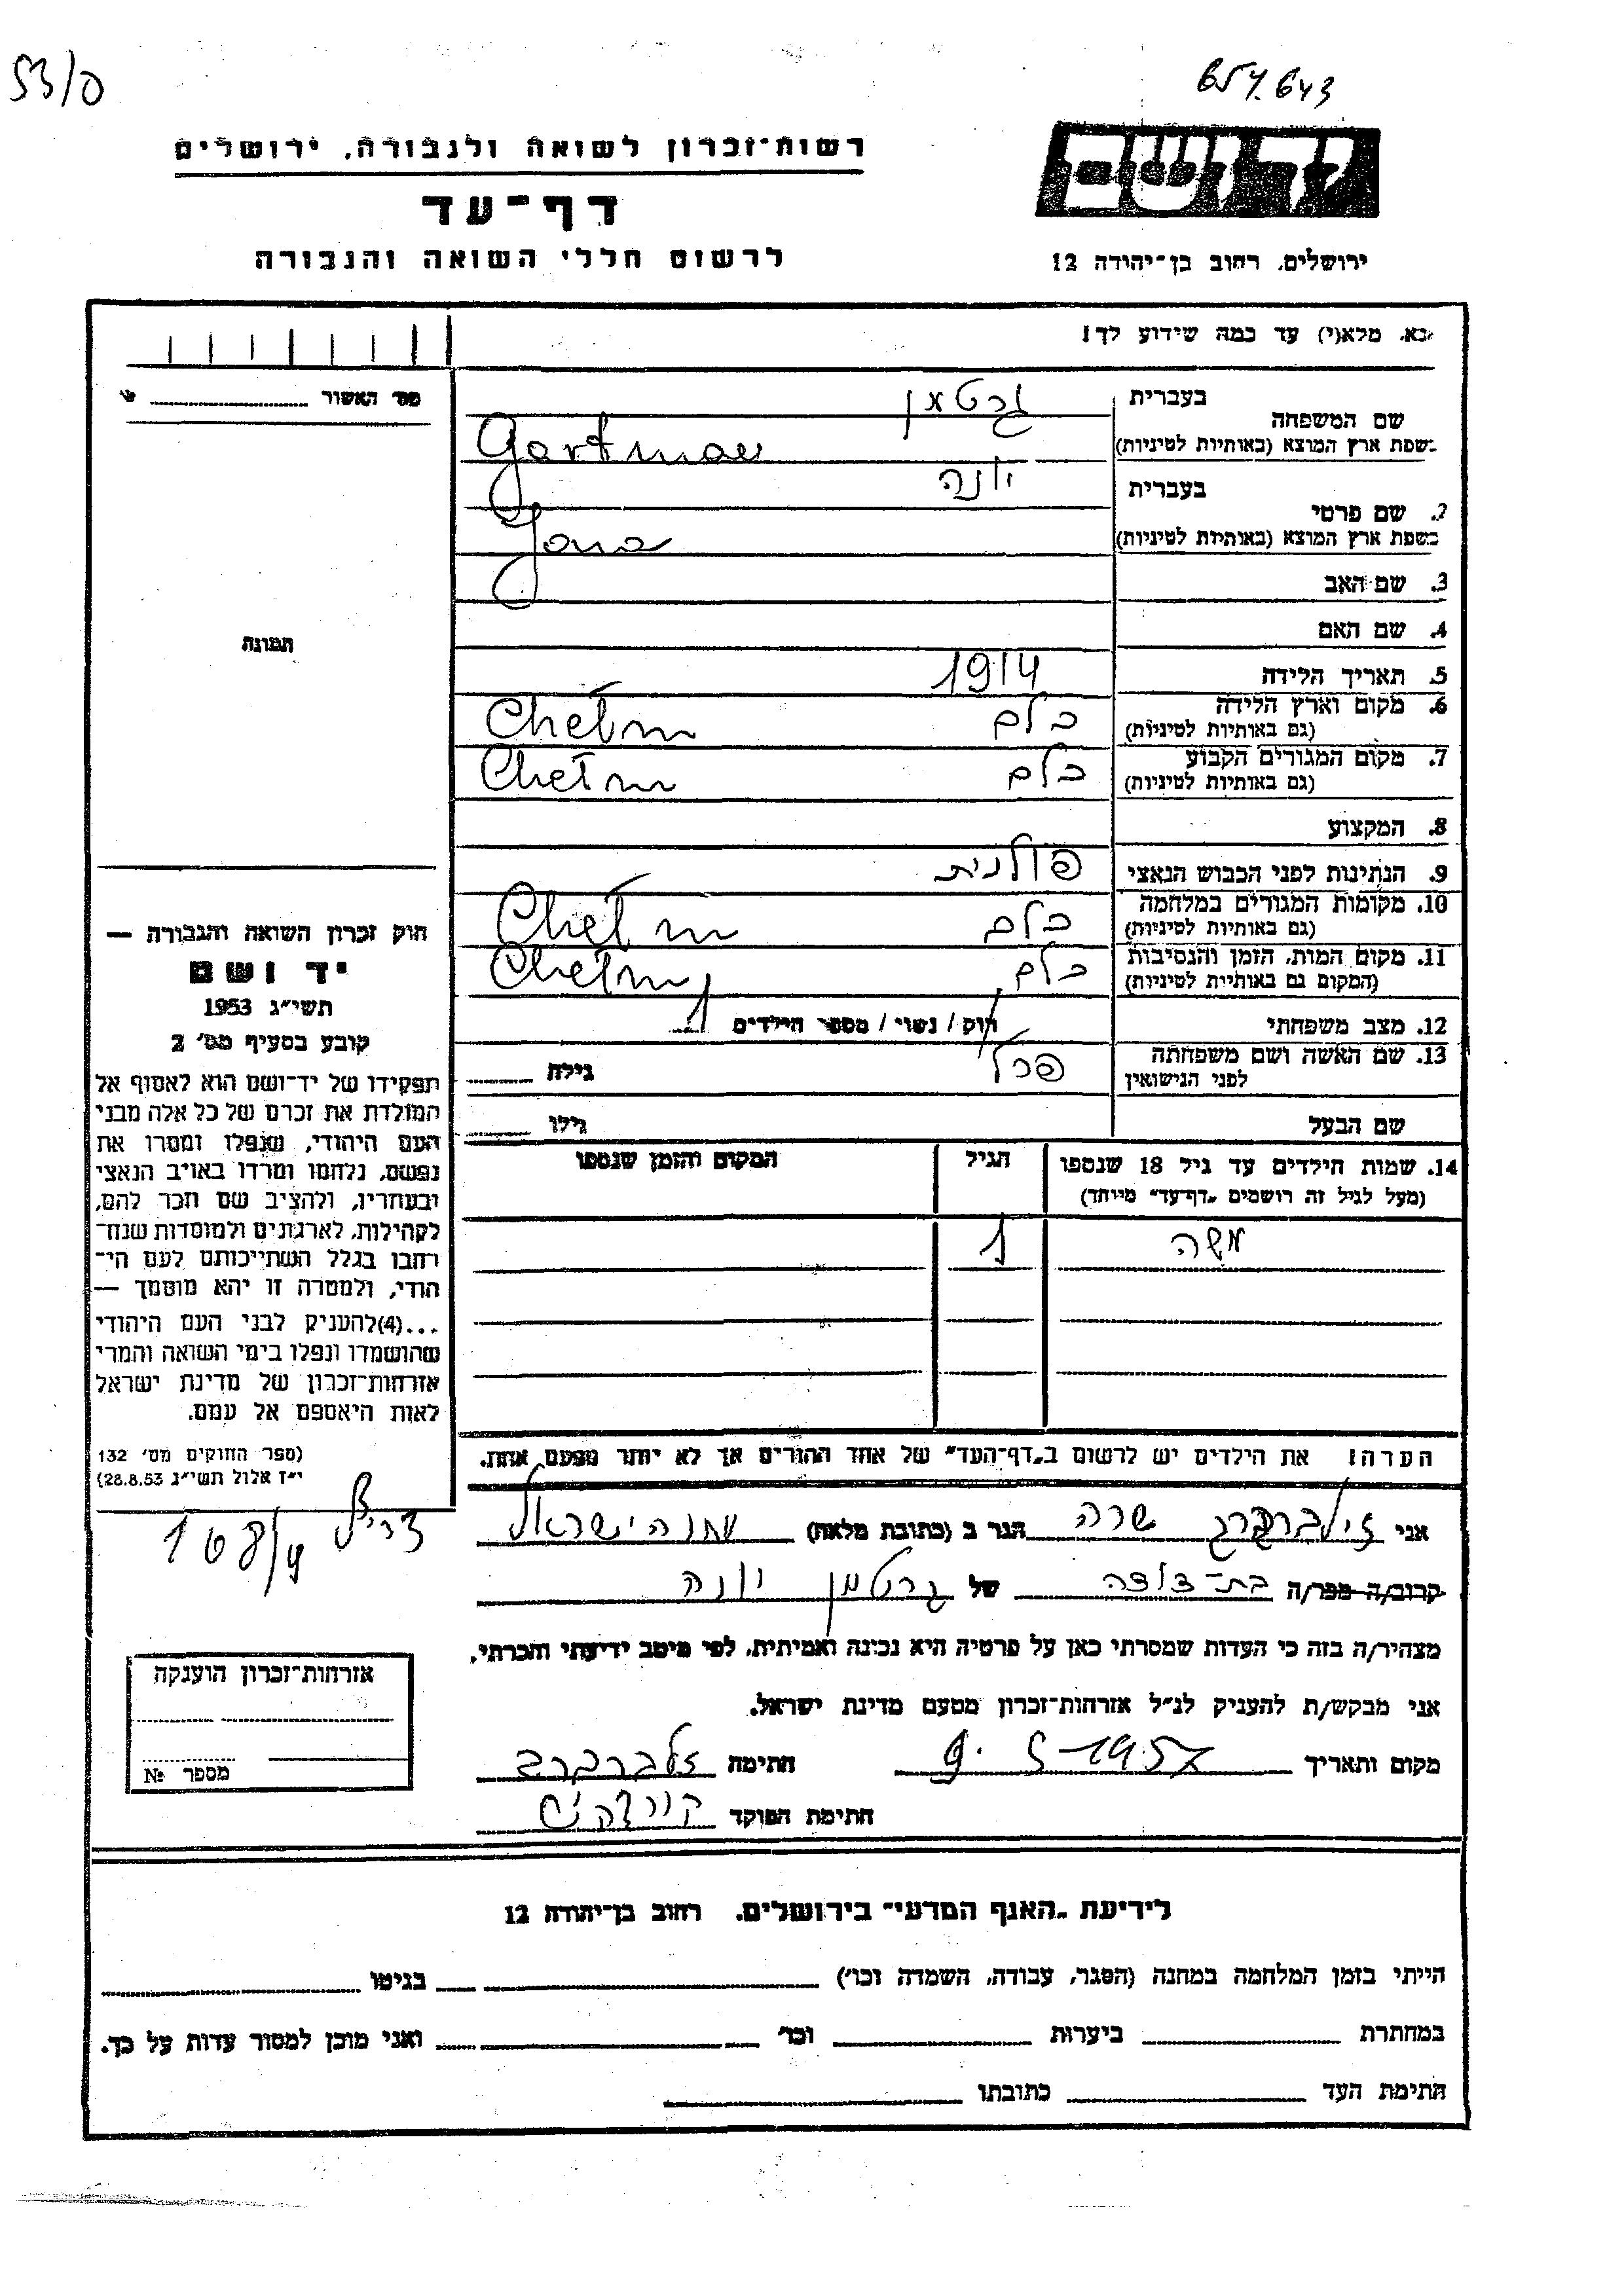 53/0
657.643
רשות־זכרון לשואה ולגבורה, ירושלים
דף־עד
לרשום חללי השואה והגבורה
ירושלים, רחוב בן־יהודה 12
נא. מלא(י) עד כמה שידוע לך!
מס׳ האשור
בעברית גרטמן
שם המשפחה
בשפת ארץ המוצא (באותיות לטיניות) Gartman
בעברית יונה
2. שם פרטי
בשפת ארץ המוצא (באותיות לטיניות) Jona
3. שם האב
4. שם האם
תמונה
5. תאריך הלידה 1914
6. מקום וארץ הלידה כלם Chełm
(גם באותיות לטיניות)
7. מקום המגורים הקבוע כלם Chełm
(גם באותיות לטיניות)
8. המקצוע
9. הנתינות לפני הכבוש הנאצי פולנית
10. מקומות המגורים במלחמה כלם Chełm
(גם באותיות לטיניות)
11. מקום המות, הזמן והנסיבות כלם Chełm
(המקום גם באותיות לטיניות)
12. מצב משפחתי רוק / נשוי / מספר הילדים 1
13. שם האשה ושם משפחתה פרל גילה
לפני הנישואין
שם הבעל גילו
14. שמות הילדים עד גיל 18 שנספו הגיל המקום והזמן שנספו
(מעל לגיל זה רושמים „דף־עד״ מיוחד)
משה 1
הערה! את הילדים יש לרשום ב„דף־העד״ של אחד ההורים אך לא יותר מפעם אחת.
חוק זכרון השואה והגבורה —
יד ושם
תשי״ג 1953
קובע בסעיף מס׳ 2
תפקידו של יד־ושם הוא לאסוף אל
המולדת את זכרם של כל אלה מבני
העם היהודי, שנפלו ומסרו את
נפשם, נלחמו ומרדו באויב הנאצי
ובעוזריו, ולהציב שם וזכר להם,
לקהילות, לארגונים ולמוסדות שנח־
רבו בגלל השתייכותם לעם הי־
הודי, ולמטרה זו יהא מוסמך —
...(4)להעניק לבני העם היהודי
שהושמדו ונפלו בימי השואה והמרי
אזרחות־זכרון של מדינת ישראל
לאות היאספם אל עמם.
(ספר החוקים מס׳ 132
י״ז אלול תשי״ג 28.8.53)
צריף 168/4
אני זילברברג שרה הגר ב (כתובת מלאה) מחנה ישראל
קרוב/ה מכר/ה בת־דודה של גרטמן יונה
מצהיר/ה בזה כי העדות שמסרתי כאן על פרטיה היא נכונה ואמיתית, לפי מיטב ידיעתי והכרתי.
אני מבקש/ת להעניק לנ״ל אזרחות־זכרון מטעם מדינת ישראל.
מקום ותאריך 9.5-1957 חתימה זלברברג
חתימת הפוקד
אזרחות־זכרון הוענקה
מספר №
לידיעת „האגף המדעי״ בירושלים, רחוב בן־יהודה 12
הייתי בזמן המלחמה במחנה (הסגר, עבודה, השמדה וכו׳) בגיטו
במחתרת ביערות וכו׳ ואני מוכן למסור עדות על כך.
חתימת העד כתובתו